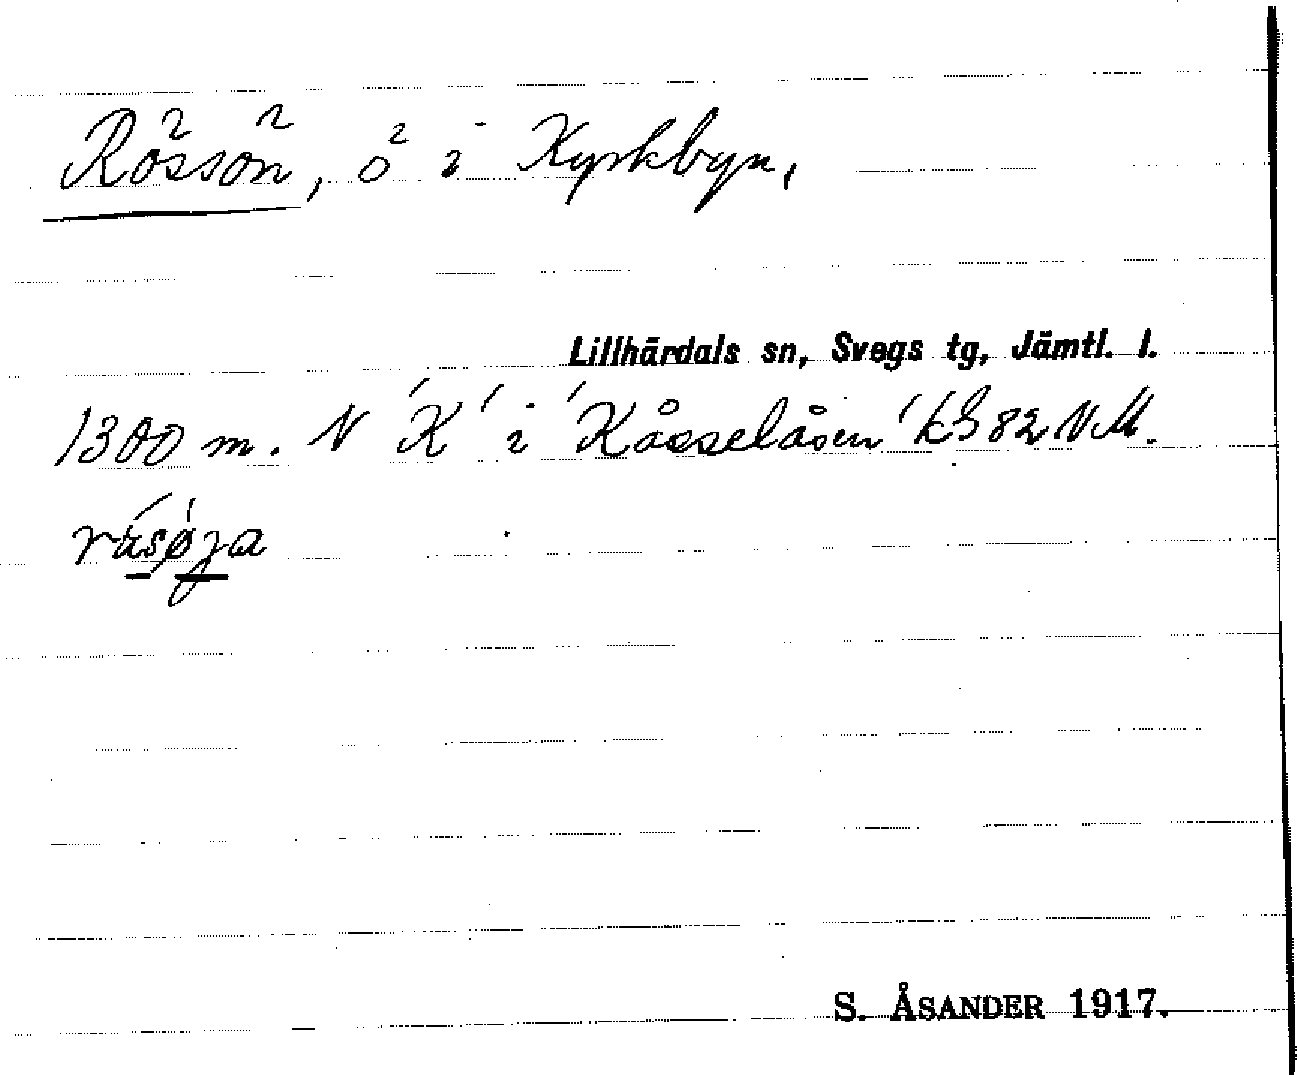 Rössön, ö i Kyrkbyn,
Lillhärdals sn, Svegs tg, Jämtl. l.
1300 m. N 'K' i 'Kåsselåsen' kS 82 N.M.
S. ÅSANDER 1917.